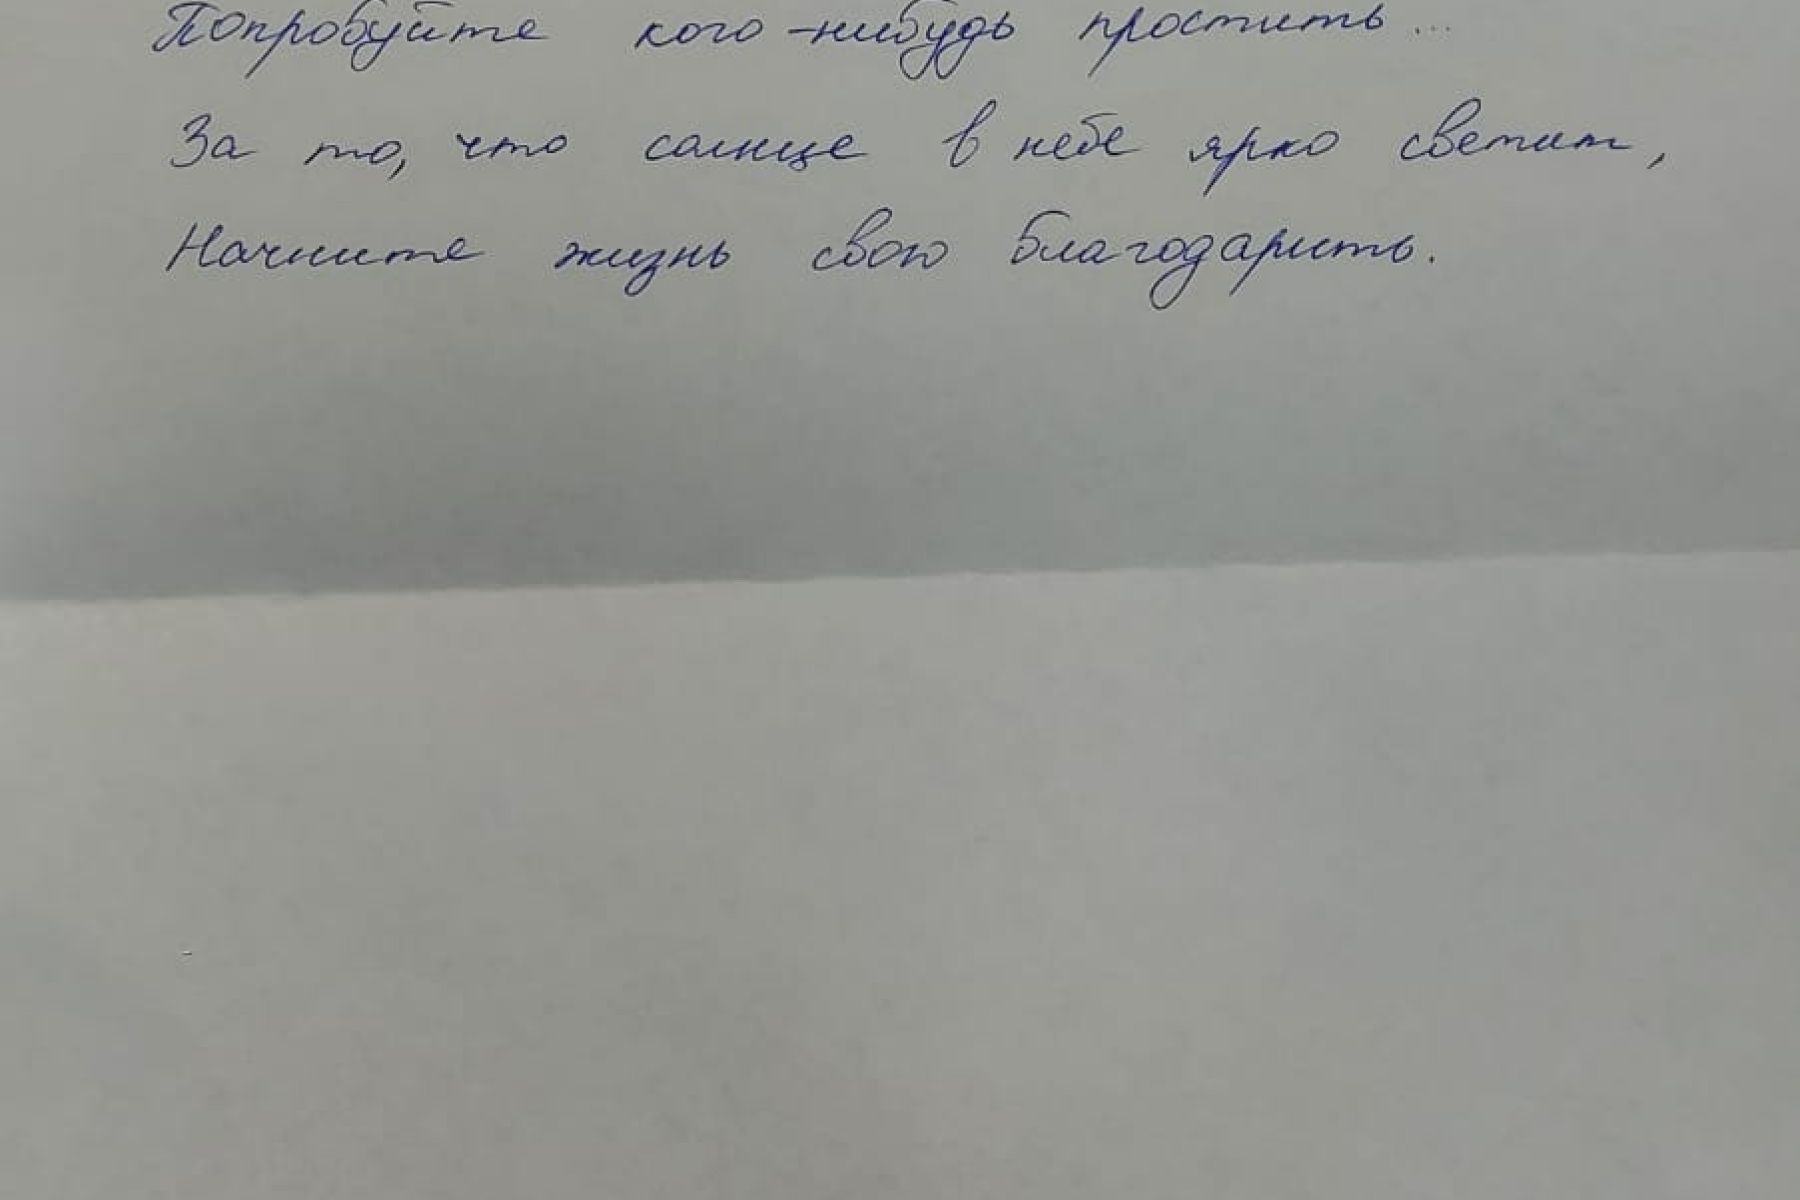 Попробуйте кого-нибудь простить...
За то, что солнце в небе ярко светит,
Начните жизнь свою благодарить.